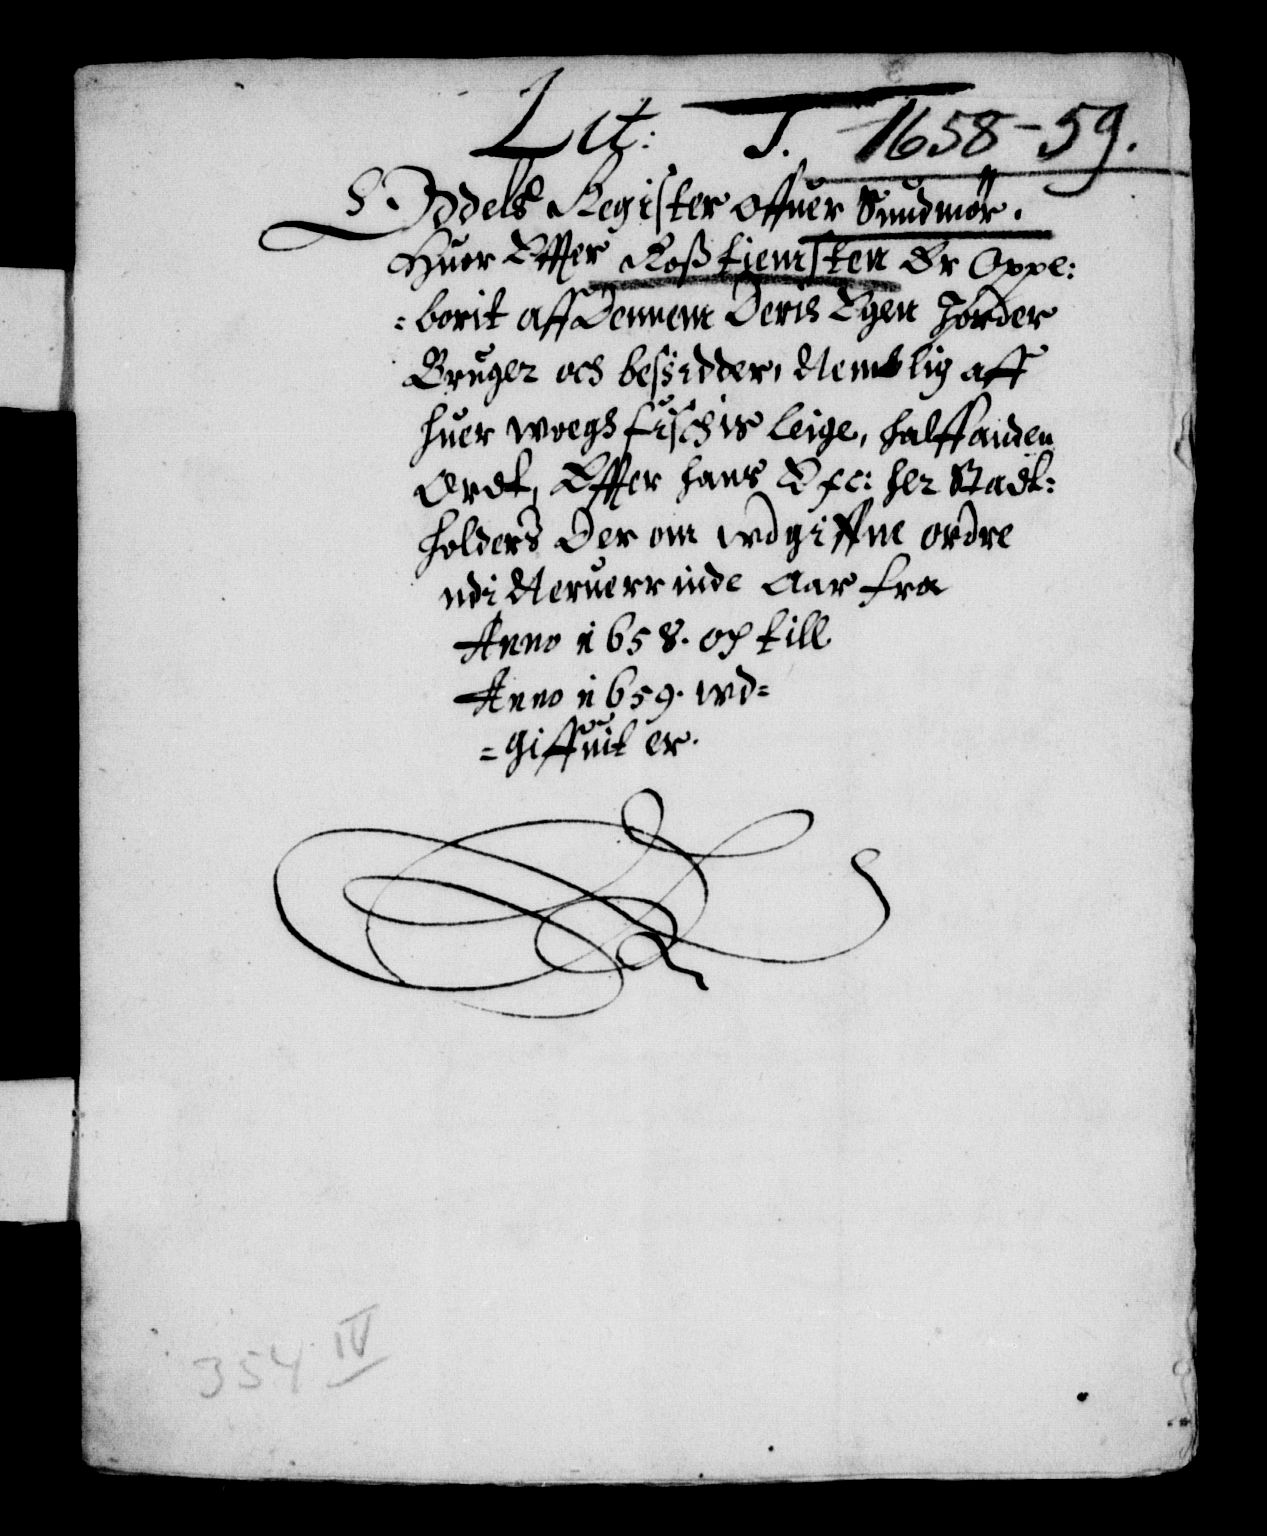 Lit: J. 1658-59.
Oddels Register offuer Sundmør.
Huor Effter Roßtienisten Er Oppe:
=borit aff Dennem Deris Egen Jorder
Bruger och besidder, Nemblig aff
huer woegs fischis leige, halffanden
Ordt, Effter hans Exc: her Stadt:
holders Der om wdgiffne ordre
udi Neruerrinde Aar fra
Anno 1658. op till
Anno 1659. wd=
=giffuit er.
354 IV